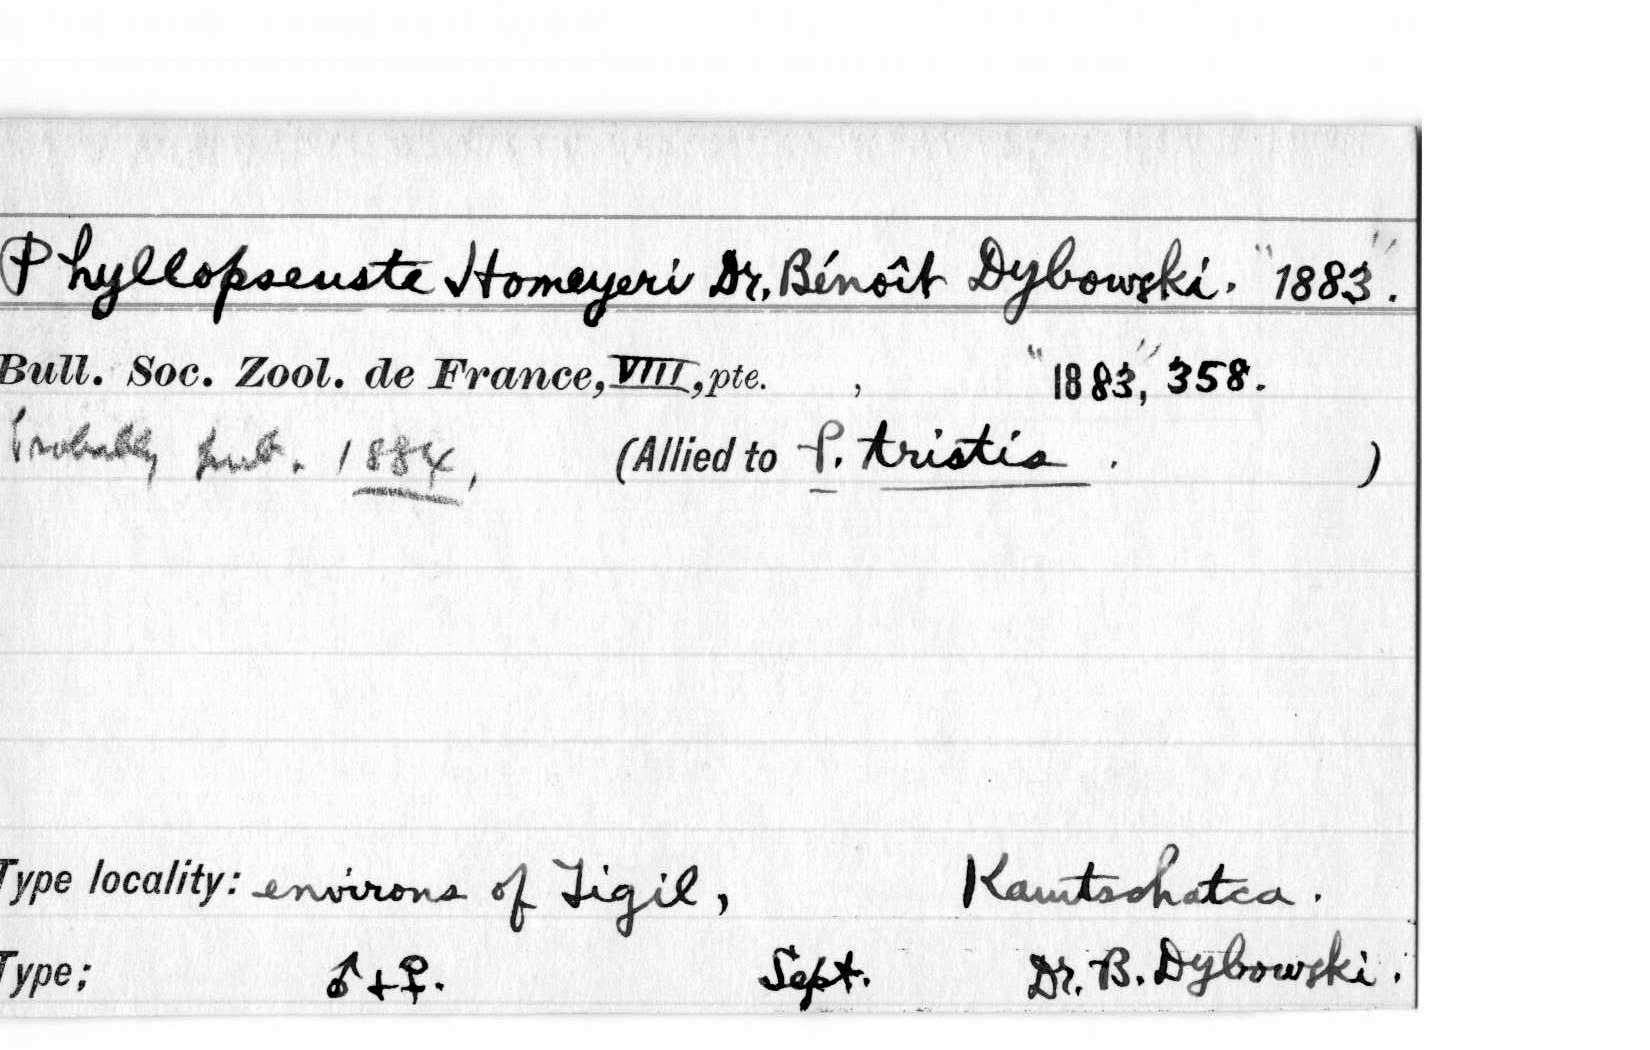 Phyllopseuste Homeyeri Dr. Bénoît Dybowski. "1883".
Bull. Soc. Zool. de France, VIII, pte. , "1883," 358.
Probably pub. 1884, (Allied to P. tristis . )
Type locality: environs of Tigil, Kamtschatca.
Type; ♂+♀. Sept. Dr. B. Dybowski.